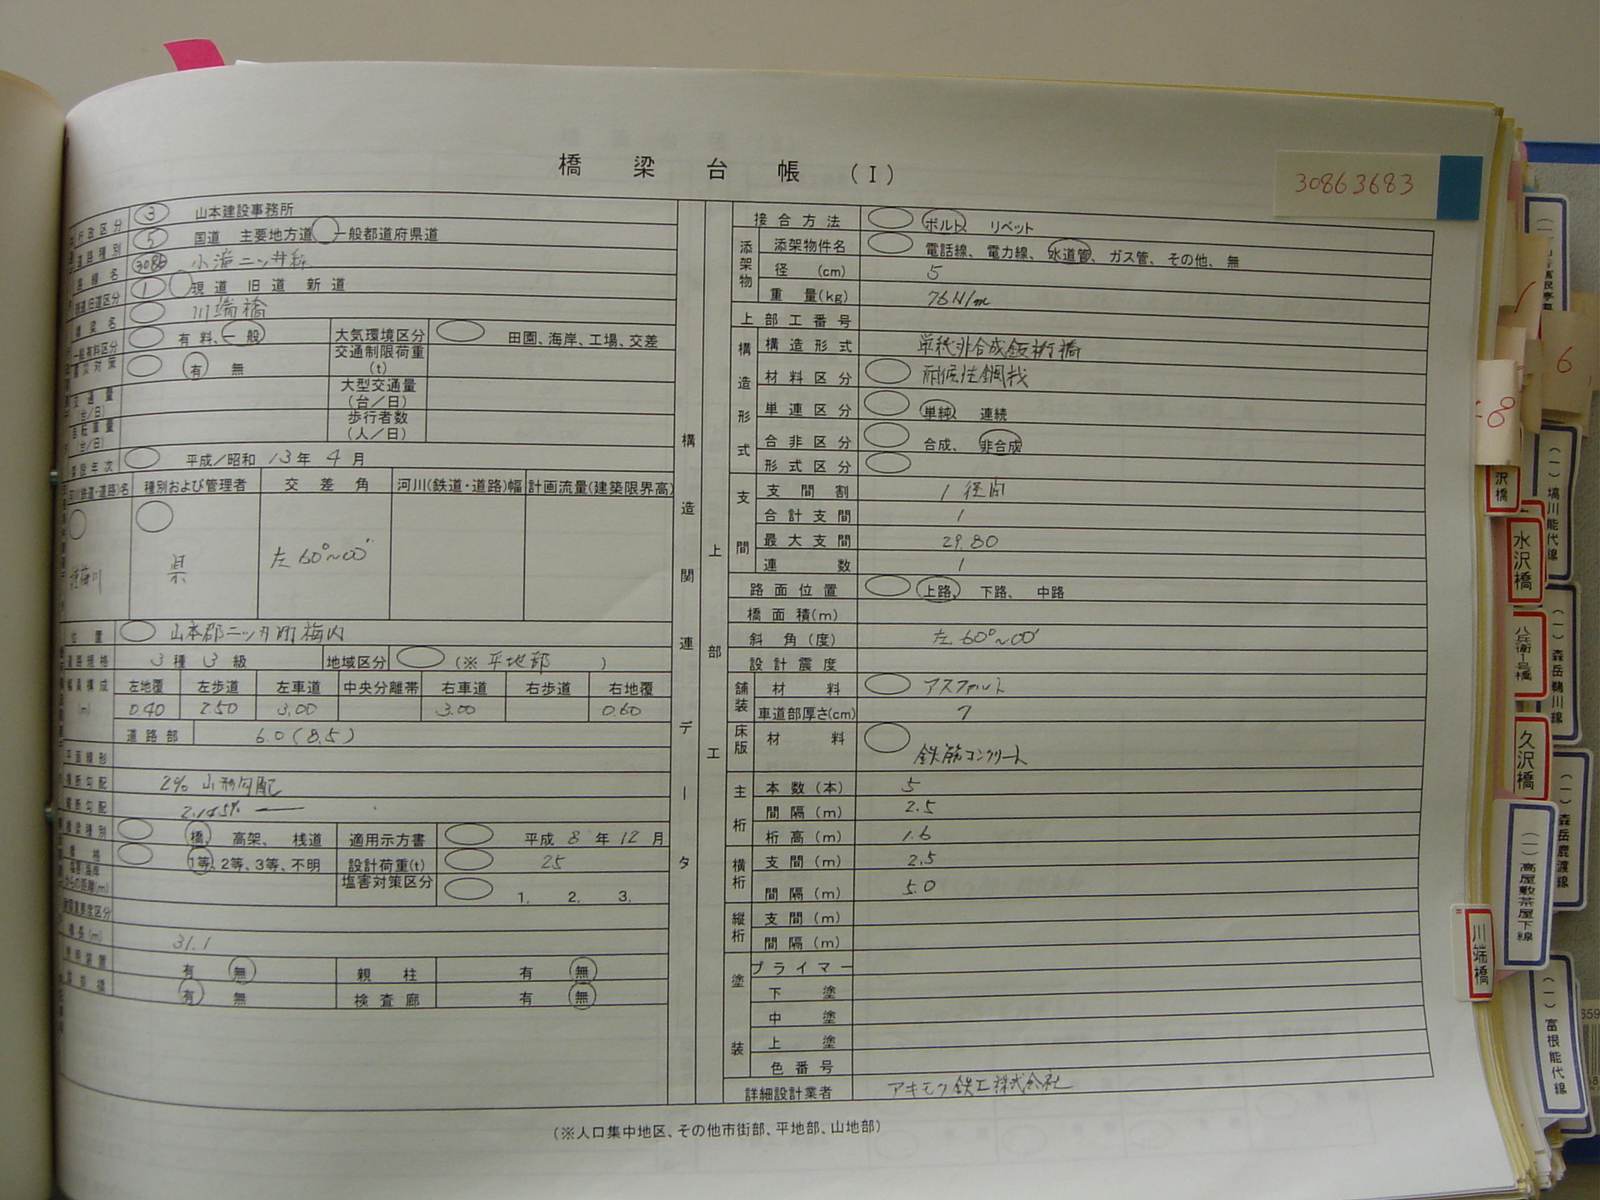 橋梁台帳（Ⅰ）
30863683
行政区分 3 山本建設事務所
道路種別 5 国道 主要地方道 一般都道府県道
路線名 3086
現道旧道区分 1 現道 旧道 新道
橋梁名 川端橋
一般有料区分 有料、一般 大気環境区分 田園、海岸、工場、交差
有 無 交通制限荷重(t)
大型交通量(台／日)
歩行者数(人／日)
架設年次 平成／昭和 13年 4月
河川(鉄道・道路)名 種別および管理者 交差角 河川(鉄道・道路)幅 計画流量(建築限界高)
県 左60°~00′
位置 山本郡二ツ井町梅内
道路規格 3種 3級 地域区分 (※ 平地部 )
幅員構成(m) 左地覆 左歩道 左車道 中央分離帯 右車道 右歩道 右地覆
0.40 2.50 3.00 3.00 0.60
道路部 6.0(8.5)
平面線形
横断勾配 2% 山形勾配
縦断勾配 2.145%
橋梁種別 橋、高架、桟道 適用示方書 平成 8年 12月
等格 1等、2等、3等、不明 設計荷重(t) 25
塩害対策区分 1. 2. 3.
橋長(m) 31.1
照明装置 有 無 親柱 有 無
有 無 検査廊 有 無
構造関連データ
上部工
接合方法 ボルト リベット
添架物 添架物件名 電話線、電力線、水道管、ガス管、その他、無
径(cm) 5
重量(kg) 76N/m
上部工番号
構造形式 構造形式 単純非合成鈑桁橋
材料区分 耐候性鋼材
単連区分 単純 連続
合非区分 合成、非合成
形式区分
支間 支間割 1径間
合計支間 1
最大支間 29.80
連数 1
路面位置 上路、下路、中路
橋面積(m)
斜角(度) 左60°~00′
設計震度
舗装 材料 アスファルト
車道部厚さ(cm) 7
床版 材料 鉄筋コンクリート
主桁 本数(本) 5
間隔(m) 2.5
桁高(m) 1.6
横桁 支間(m) 2.5
間隔(m) 5.0
縦桁 支間(m)
間隔(m)
塗装 プライマー
下塗
中塗
上塗
色番号
詳細設計業者 アキモク鉄工株式会社
(※人口集中地区、その他市街部、平地部、山地部)
6
8
沢橋
水沢橋
八兵衛1号橋
久沢橋
川端橋
(一)塙川能代線
(一)森岳鵜川線
(一)森岳鹿渡線
(一)高屋敷茶屋下線
(一)富根能代線